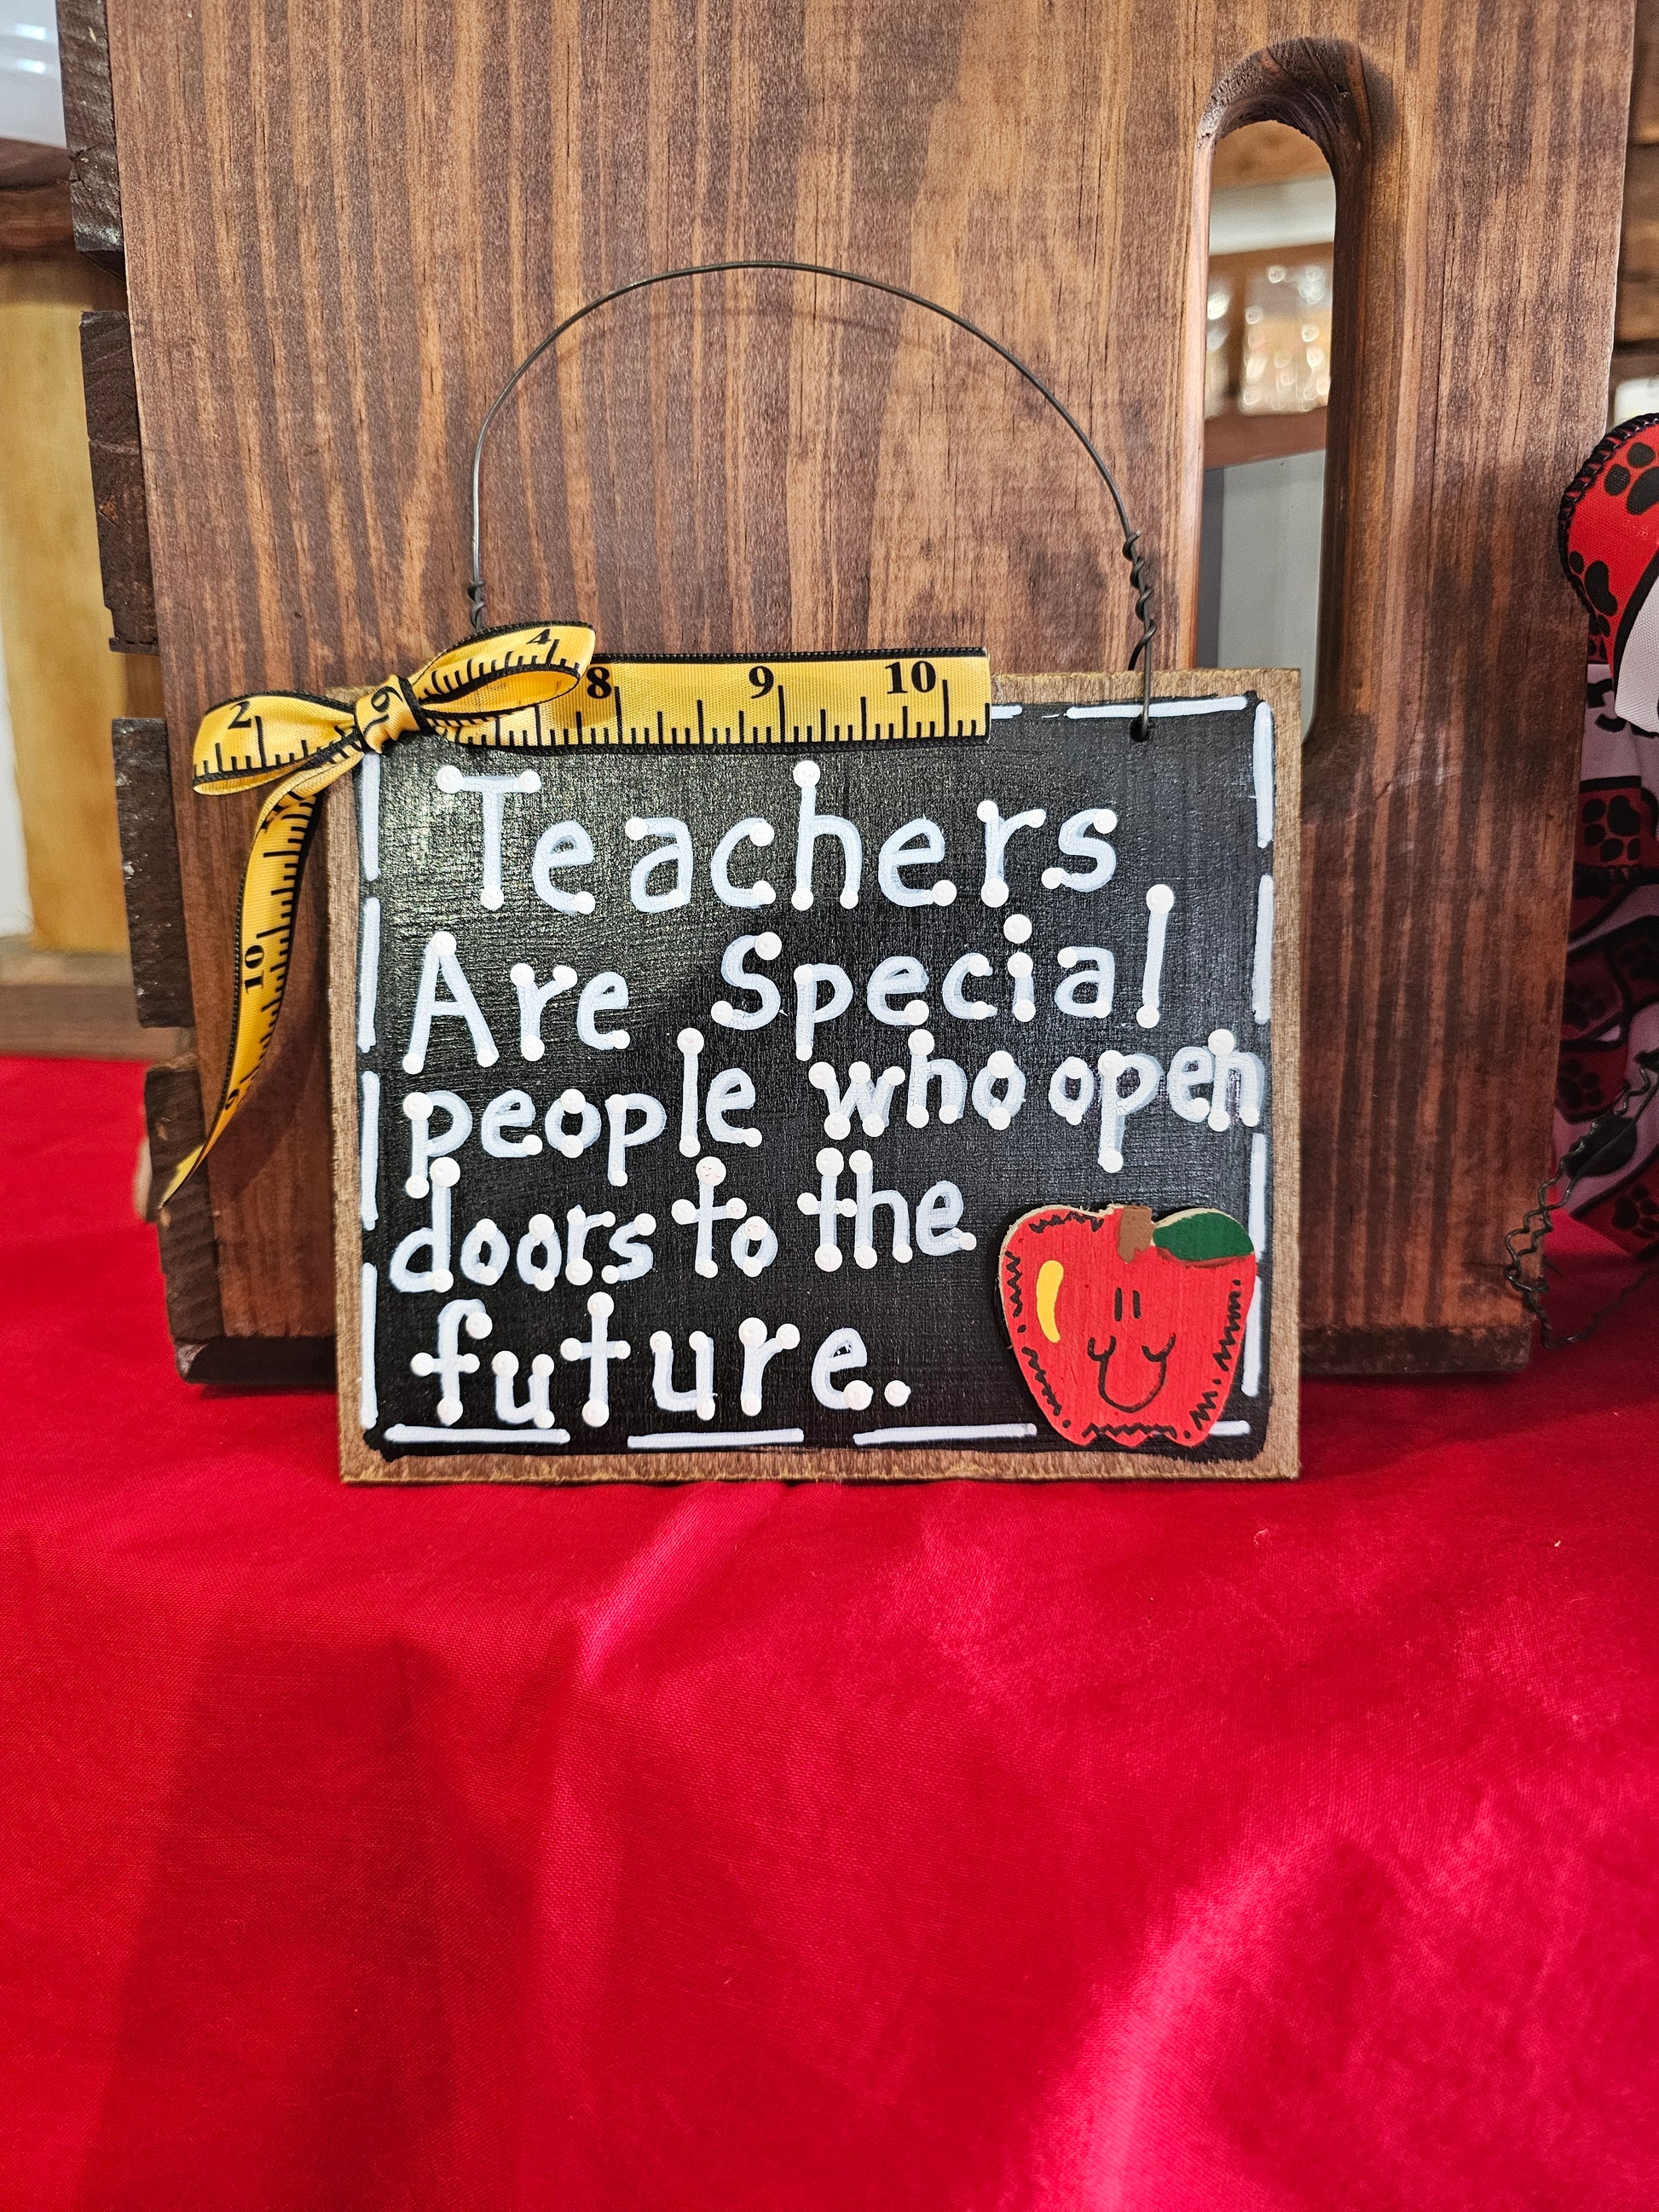 2 4 6 8 9 10
10
9
Teachers
Are Special
people who open
doors to the
future.